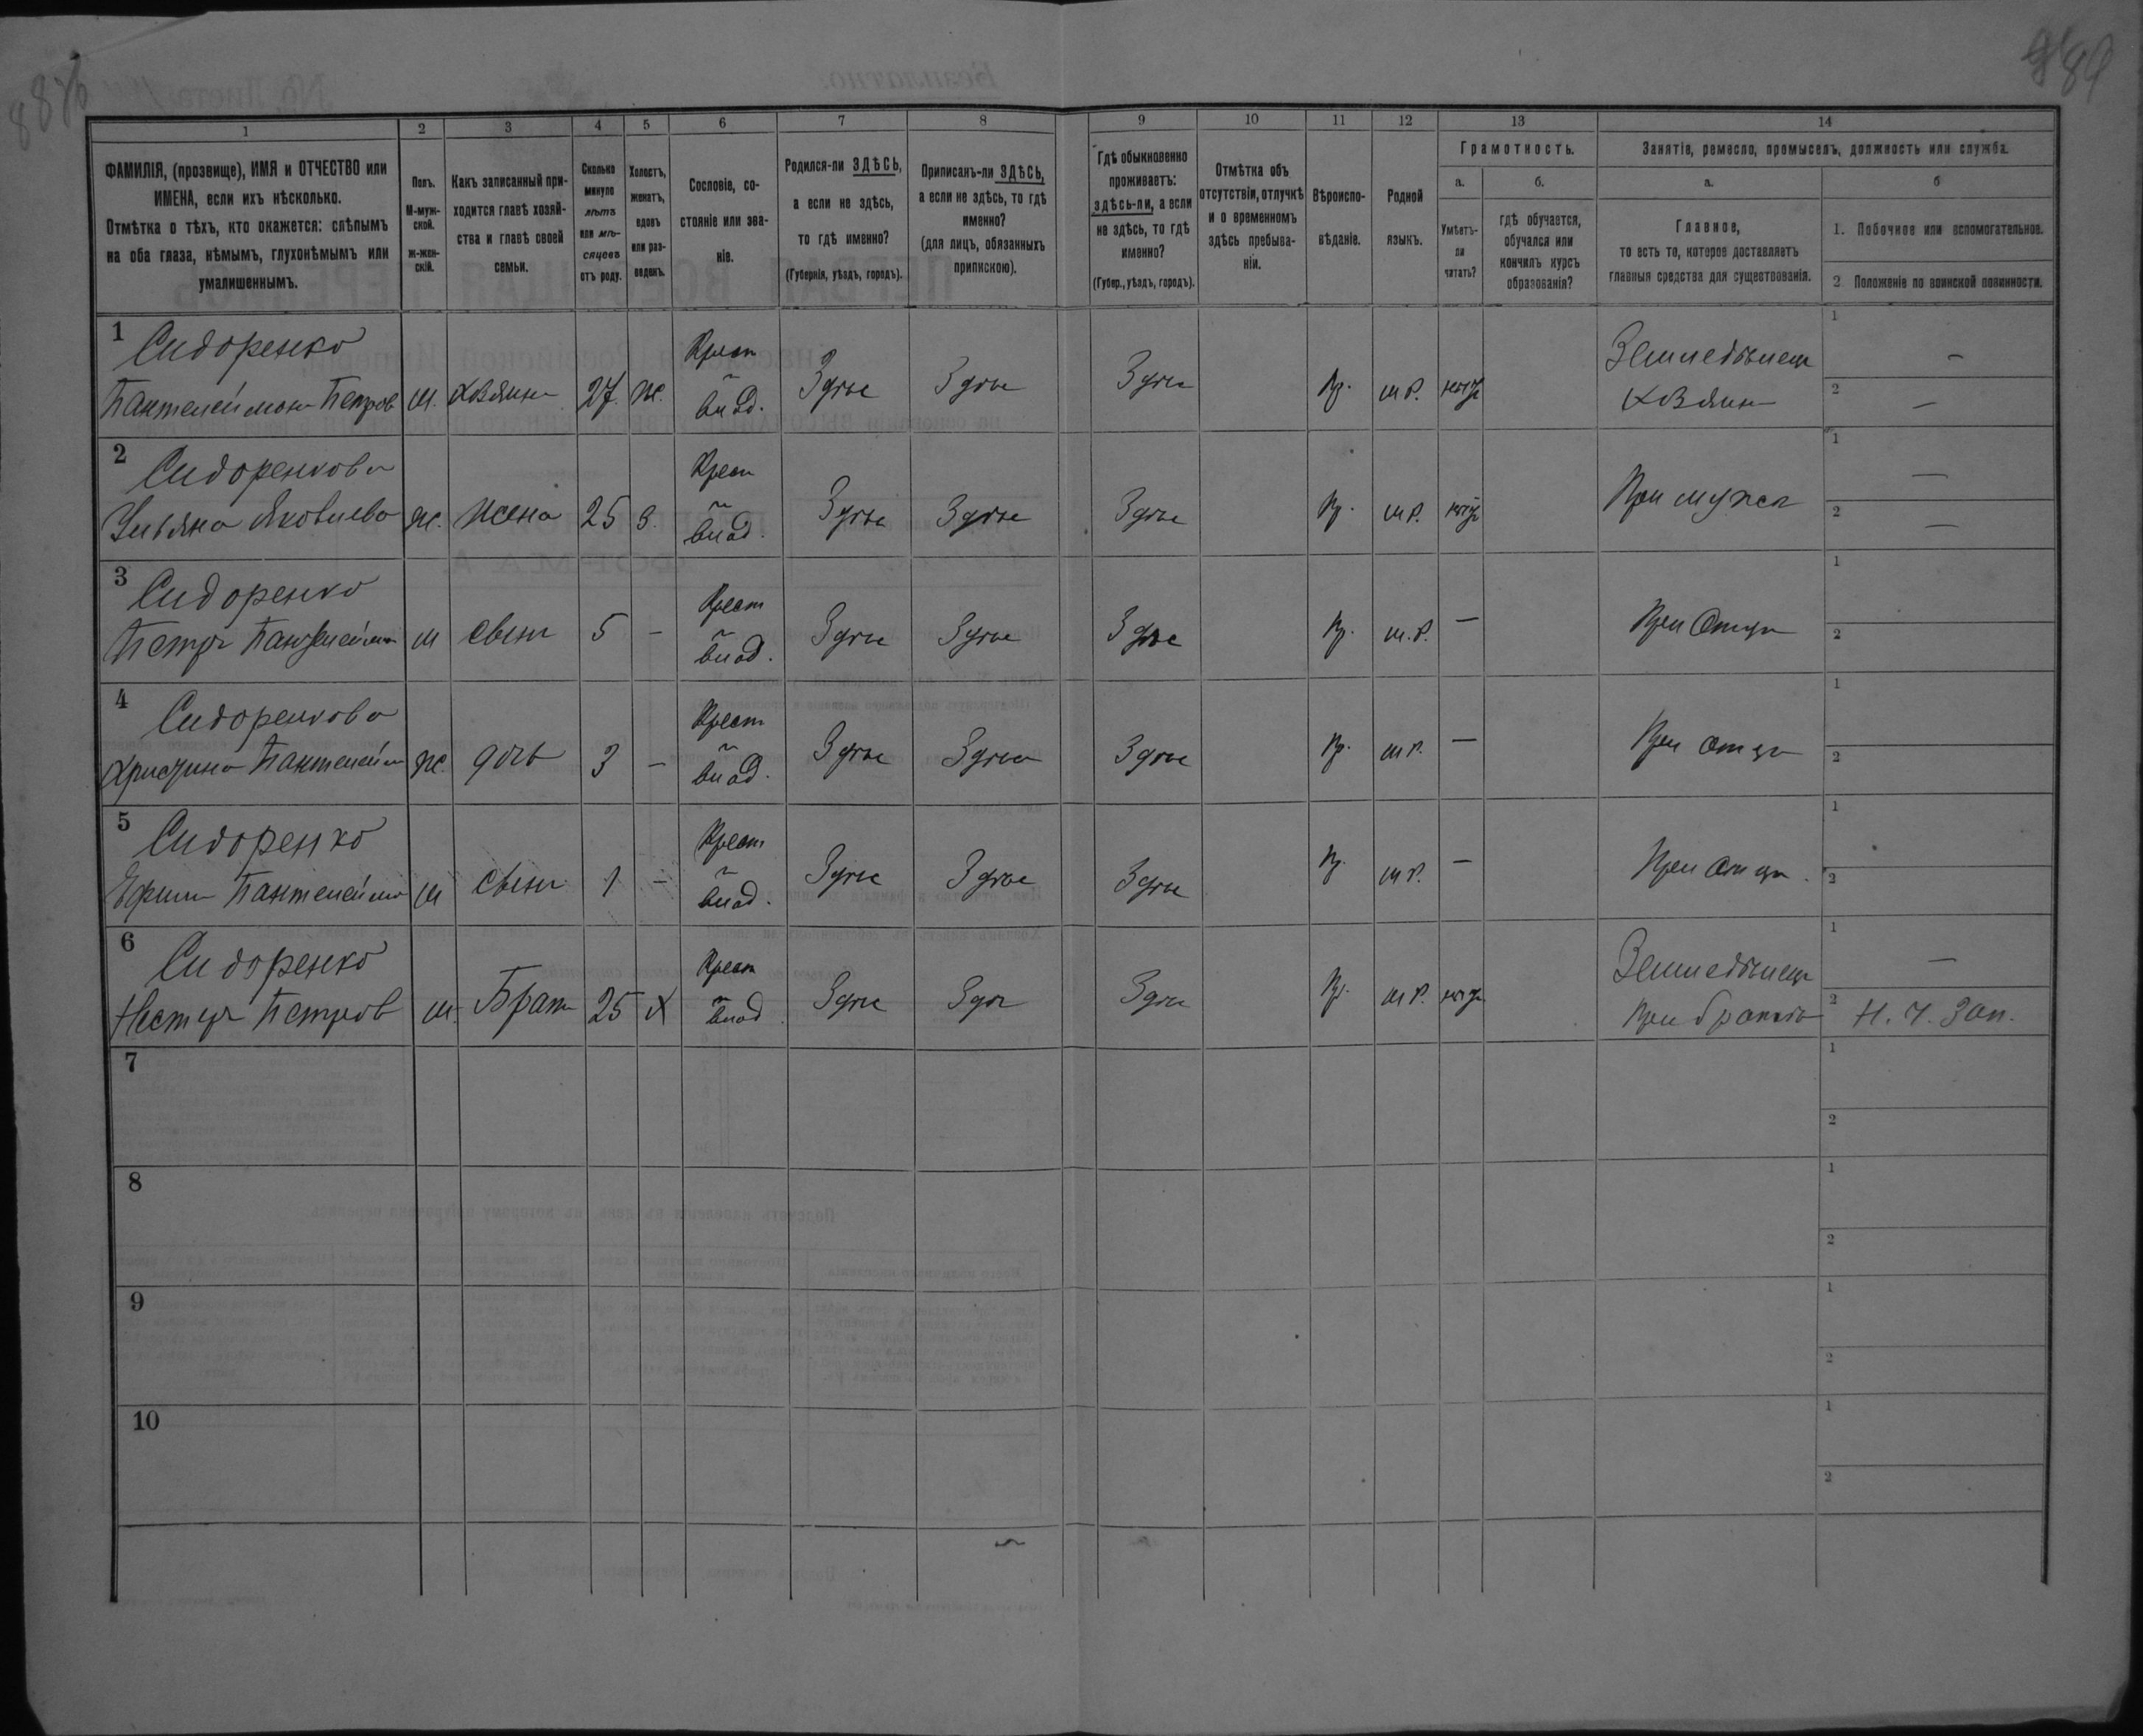 889
1 2 3 4 5 6 7 8 9 10 11 12 13 14
ФАМИЛІЯ, (прозвище), ИМЯ и ОТЧЕСТВО или
ИМЕНА, если ихъ нѣсколько.
Отмѣтка о тѣхъ, кто окажется: слѣпымъ
на оба глаза, нѣмымъ, глухонѣмымъ или
умалишеннымъ.
Полъ.
М-муж-
ской.
ж-жен-
скій.
Какъ записанный при-
ходится главѣ хозяй-
ства и главѣ своей
семьи.
Сколько
минуло
лѣтъ
или мѣ-
сяцевъ
отъ роду.
Холостъ,
женатъ,
вдовъ
или раз-
веденъ.
Сословіе, со-
стояніе или зва-
ніе.
Родился-ли ЗДѢСЬ,
а если не здѣсь,
то гдѣ именно?
(Губернія, уѣздъ, городъ).
Приписанъ-ли ЗДѢСЬ,
а если не здѣсь, то гдѣ
именно?
(для лицъ, обязанныхъ
припискою).
Гдѣ обыкновенно
проживаетъ:
здѣсь-ли, а если
не здѣсь, то гдѣ
именно?
(Губер., уѣздъ, городъ).
Отмѣтка объ
отсутствіи, отлучкѣ
и о временномъ
здѣсь пребыва-
ніи.
Вѣроиспо-
вѣданіе.
Родной
языкъ.
Грамотность.
а.
Умѣетъ-
ли
читать?
б.
гдѣ обучается,
обучался или
кончилъ курсъ
образованія?
Занятіе, ремесло, промыселъ, должность или служба.
а.
Главное,
то есть то, которое доставляетъ
главныя средства для существованія.
б
1. Побочное или вспомогательное.
2. Положеніе по воинской повинности.
1 Сидоренко
Пантелеймон Петров м. хозяин 27. ж. Крест влад. Здѣсе Здѣсе Здѣсе Пр. м.р. нѣтъ Земледѣлец хозяин 1 — 2 —
2 Сидоренкова
Ульяна Яковлева ж. жена 25 з. Крест влад. Здѣсе Здѣсе Здѣсе Пр. м.р. нѣтъ При мужѣ 1 — 2 —
3 Сидоренко
Петръ Пантелеймо м сынъ 5 — Крест влад. Здѣсе Здѣсе Здѣсе Пр. м.р. — При отцѣ 1 2
4 Сидоренкова
Христина Пантелейм ж. дочь 3 — Крест влад. Здѣсе Здѣсе Здѣсе Пр. м.р. — При отцѣ 1 2
5 Сидоренко
Ефим Пантелеймо м сынъ 1 — Крест влад. Здѣсе Здѣсе Здѣсе Пр. м.р. — При отцѣ 1 2
6 Сидоренко
Нестеръ Петров м. Брат 25 х Крест влад Здѣсе Здѣс Здѣсе Пр. м.р. нѣтъ Земледѣлец при братѣ 1 — 2 Н. Ч. Зап.
7 1 2
8 1 2
9 1 2
10 1 2